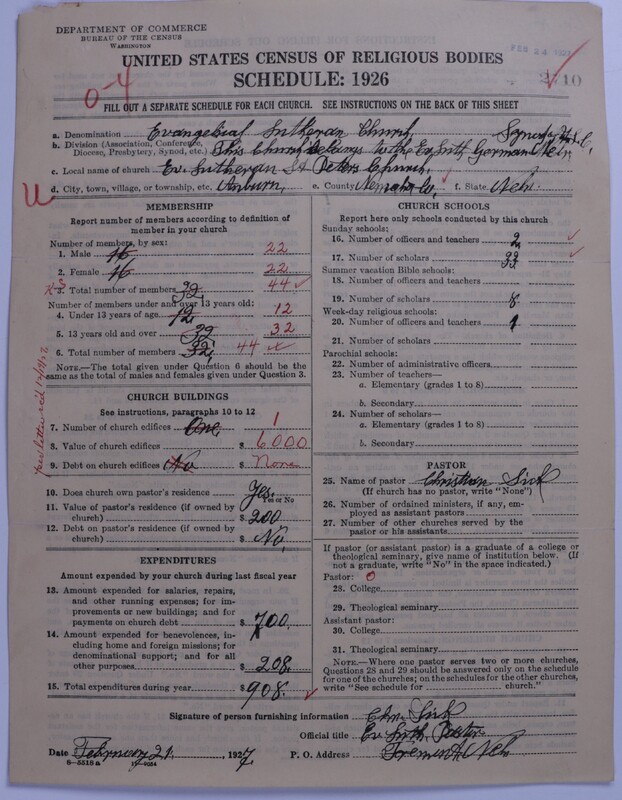 DEPARTMENT OF COMMERCE
BUREAU OF THE CENSUS
WASHINGTON
FEB 24 1927
UNITED STATES CENSUS OF RELIGIOUS BODIES
SCHEDULE: 1926
0-4
FILL OUT A SEPARATE SCHEDULE FOR EACH CHURCH. SEE INSTRUCTIONS ON THE BACK OF THIS SHEET
a. Denomination Evangelical Lutheran Church,
b. Division (Association, Conference, Diocese, Presbytery, Synod, etc.) This Church belongs to the Ev. Luth. German Nebr.
c. Local name of church Ev. Lutheran St Peters Church,
d. City, town, village, or township, etc. Auburn, e. County Nemaha Co. f. State Nebr.
U
MEMBERSHIP
Report number of members according to definition of member in your church
Number of members, by sex:
1. Male 16 22
2. Female 16 22
3. Total number of members 32 44
Number of members under and over 13 years old:
4. Under 13 years of age 12 12
5. 13 years old and over 32
6. Total number of members 32, 44
NOTE.—The total given under Question 6 should be the same as the total of males and females given under Question 3.
CHURCH BUILDINGS
See instructions, paragraphs 10 to 12
7. Number of church edifices One 1
8. Value of church edifices $ 6000
9. Debt on church edifices No $ None
10. Does church own pastor's residence Yes.
Yes or No
11. Value of pastor's residence (if owned by church) $ 200
12. Debt on pastor's residence (if owned by church) $ No,
EXPENDITURES
Amount expended by your church during last fiscal year
13. Amount expended for salaries, repairs, and other running expenses; for improvements or new buildings; and for payments on church debt $ 700,
14. Amount expended for benevolences, including home and foreign missions; for denominational support; and for all other purposes $ 208.
15. Total expenditures during year $ 908.
CHURCH SCHOOLS
Report here only schools conducted by this church
Sunday schools:
16. Number of officers and teachers 2
17. Number of scholars 33
Summer vacation Bible schools:
18. Number of officers and teachers
19. Number of scholars 8
Week-day religious schools:
20. Number of officers and teachers 1
21. Number of scholars
Parochial schools:
22. Number of administrative officers
23. Number of teachers—
a. Elementary (grades 1 to 8)
b. Secondary
24. Number of scholars—
a. Elementary (grades 1 to 8)
b. Secondary
PASTOR
25. Name of pastor Christian Sick
(If church has no pastor, write "None")
26. Number of ordained ministers, if any, employed as assistant pastors
27. Number of other churches served by the pastor or his assistants
If pastor (or assistant pastor) is a graduate of a college or theological seminary, give name of institution below. (If not a graduate, write "No" in the space indicated.)
Pastor: 0
28. College
29. Theological seminary
Assistant pastor:
30. College
31. Theological seminary
NOTE.—Where one pastor serves two or more churches, Questions 28 and 29 should be answered only on the schedule for one of the churches; on the schedules for the other churches, write "See schedule for church."
Signature of person furnishing information Chr. Sick
Official title Ev. Luth. Pastor
Date February 21, 1927 P. O. Address Fremont, Nebr
8-5518 a